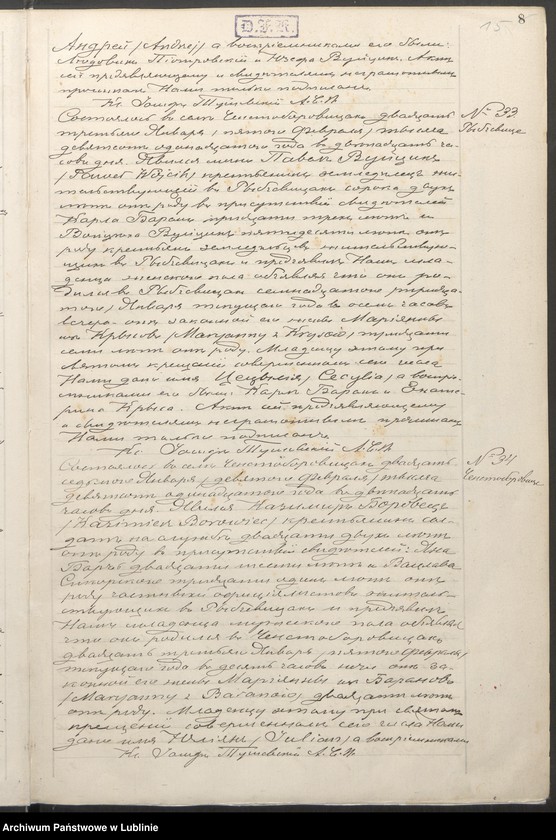 D.F.K.
15
8
Андрей /Andrzej/ а воспріемниками его были:
Людовикъ Піотровскій и Юзефа Вуйцикъ. Актъ
сей предъявляющему и свидетелямъ неграмотнымъ
прочитанъ Нами только подписанъ.
Кс. Іосифъ Тушевскій А.С.П.
№ 33
Рыбчевице
Состоялось въ селе Ченстоборовицахъ двадцать
третьяго Января /пятого Февраля/ тысяча
девятьсотъ одинадцатого года въ двенадцать ча-
совъ дня. Явился лично Павелъ Вуйцикъ
/Paweł Wójcik/ крестьянинъ земледелецъ жи-
тельствующій въ Рыбчевицахъ сорока двухъ
летъ отъ роду въ присутствіи свидетелей
Карла Барана тридцати трехъ летъ и
Войцеха Вуйцика пятидесяти летъ отъ
роду крестьянъ земледельцевъ жительствую-
щихъ въ Рыбчевицахъ и предъявилъ Намъ мла-
денца женского пола объявляя что онъ ро-
дился въ Рыбчевицахъ семнадцатого /тридца-
того/ Января текущаго года въ восемь часовъ
вечера отъ законной его жены Маріянны
изъ Крысовъ /Maryanny z Krysów/ тридцати
семи летъ отъ роду. Младенцу этому при
Святомъ крещеніи совершенномъ сего числа
Нами дано имя Цецылія /Cecylia/ а воспрі-
емниками его были: Карлъ Баранъ и Екате-
рина Крыса. Актъ сей предъявляющему
и свидетелямъ неграмотнымъ прочитанъ
Нами только подписанъ.
Кс. Іосифъ Тушевскій А.С.П.
№ 34
Ченстоборовице
Состоялось въ селе Ченстоборовицахъ двадцать
седьмого Января /девятого Февраля/ тысяча
девятьсотъ одинадцатого года въ двенадцать
часовъ дня. Явился Казимиръ Боровецъ
/Kazimierz Borowiec/ крестьянинъ сол-
датъ на службе двадцати двухъ летъ
отъ роду въ присутствіи свидетелей: Яна
двадцати шести летъ и Вацлава
Сикорского тридцати одинъ летъ отъ
роду частныхъ официялистовъ житель-
ствующихъ въ Рыбчевицахъ и предъявилъ
Намъ младенца мужеского пола объявляя
что онъ родился въ Ченстоборовицахъ
двадцать третьяго Января /пятого Февраля/
текущаго года въ десять часовъ ночи отъ за-
конной его жены Маріянны изъ Барановъ
/Maryanny z Baranów/ двадцати летъ
отъ роду. Младенцу этому при святомъ
крещеніи совершенномъ сего числа Нами
дано имя Юліянъ /Julian/ а воспріемниками
Кс. Іосифъ Тушевскій А.С.П.
Archiwum Państwowe w Lublinie